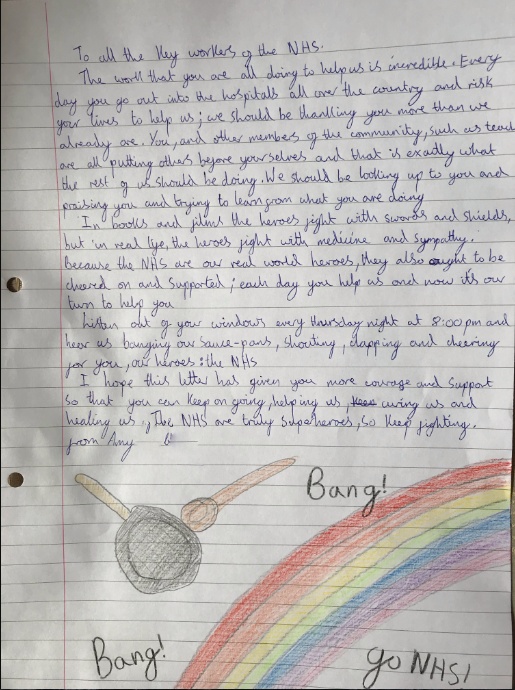 To all the Key workers of the NHS.
The work that you are all doing to help us is incredible. Every
day you go out into the hospitals all over the country and risk
your lives to help us; we should be thanking you more than we
already are. You, and other members of the community, such as teac
are all putting others before yourselves and that is exactly what
the rest of us should be doing. We should be looking up to you and
praising you and trying to learn from what you are doing
In books and films the heroes fight with swords and shields,
but in real life, the heroes fight with medicine and sympathy.
Because the NHS are our real world heroes, they also ought to be
cheered on and supported; each day you help us and now it's our
turn to help you
Listen out of your windows every thursday night at 8:00pm and
hear us banging our sauce-pans, shouting, clapping and cheering
for you, our heroes: the NHS
I hope this letter has given you more courage and support
so that you can keep on going, helping us, curing us and
healing us. The NHS are truly superheroes, so keep fighting.
from Amy
Bang!
Bang!
go NHS!